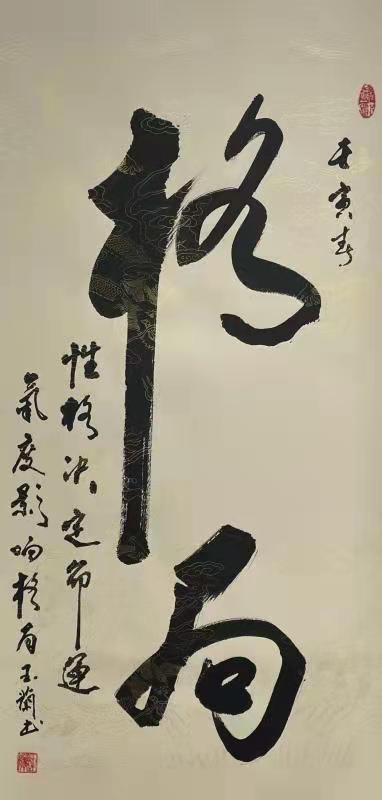 壬寅春
格局
性格决定命运
氣度影响格局玉蘭书